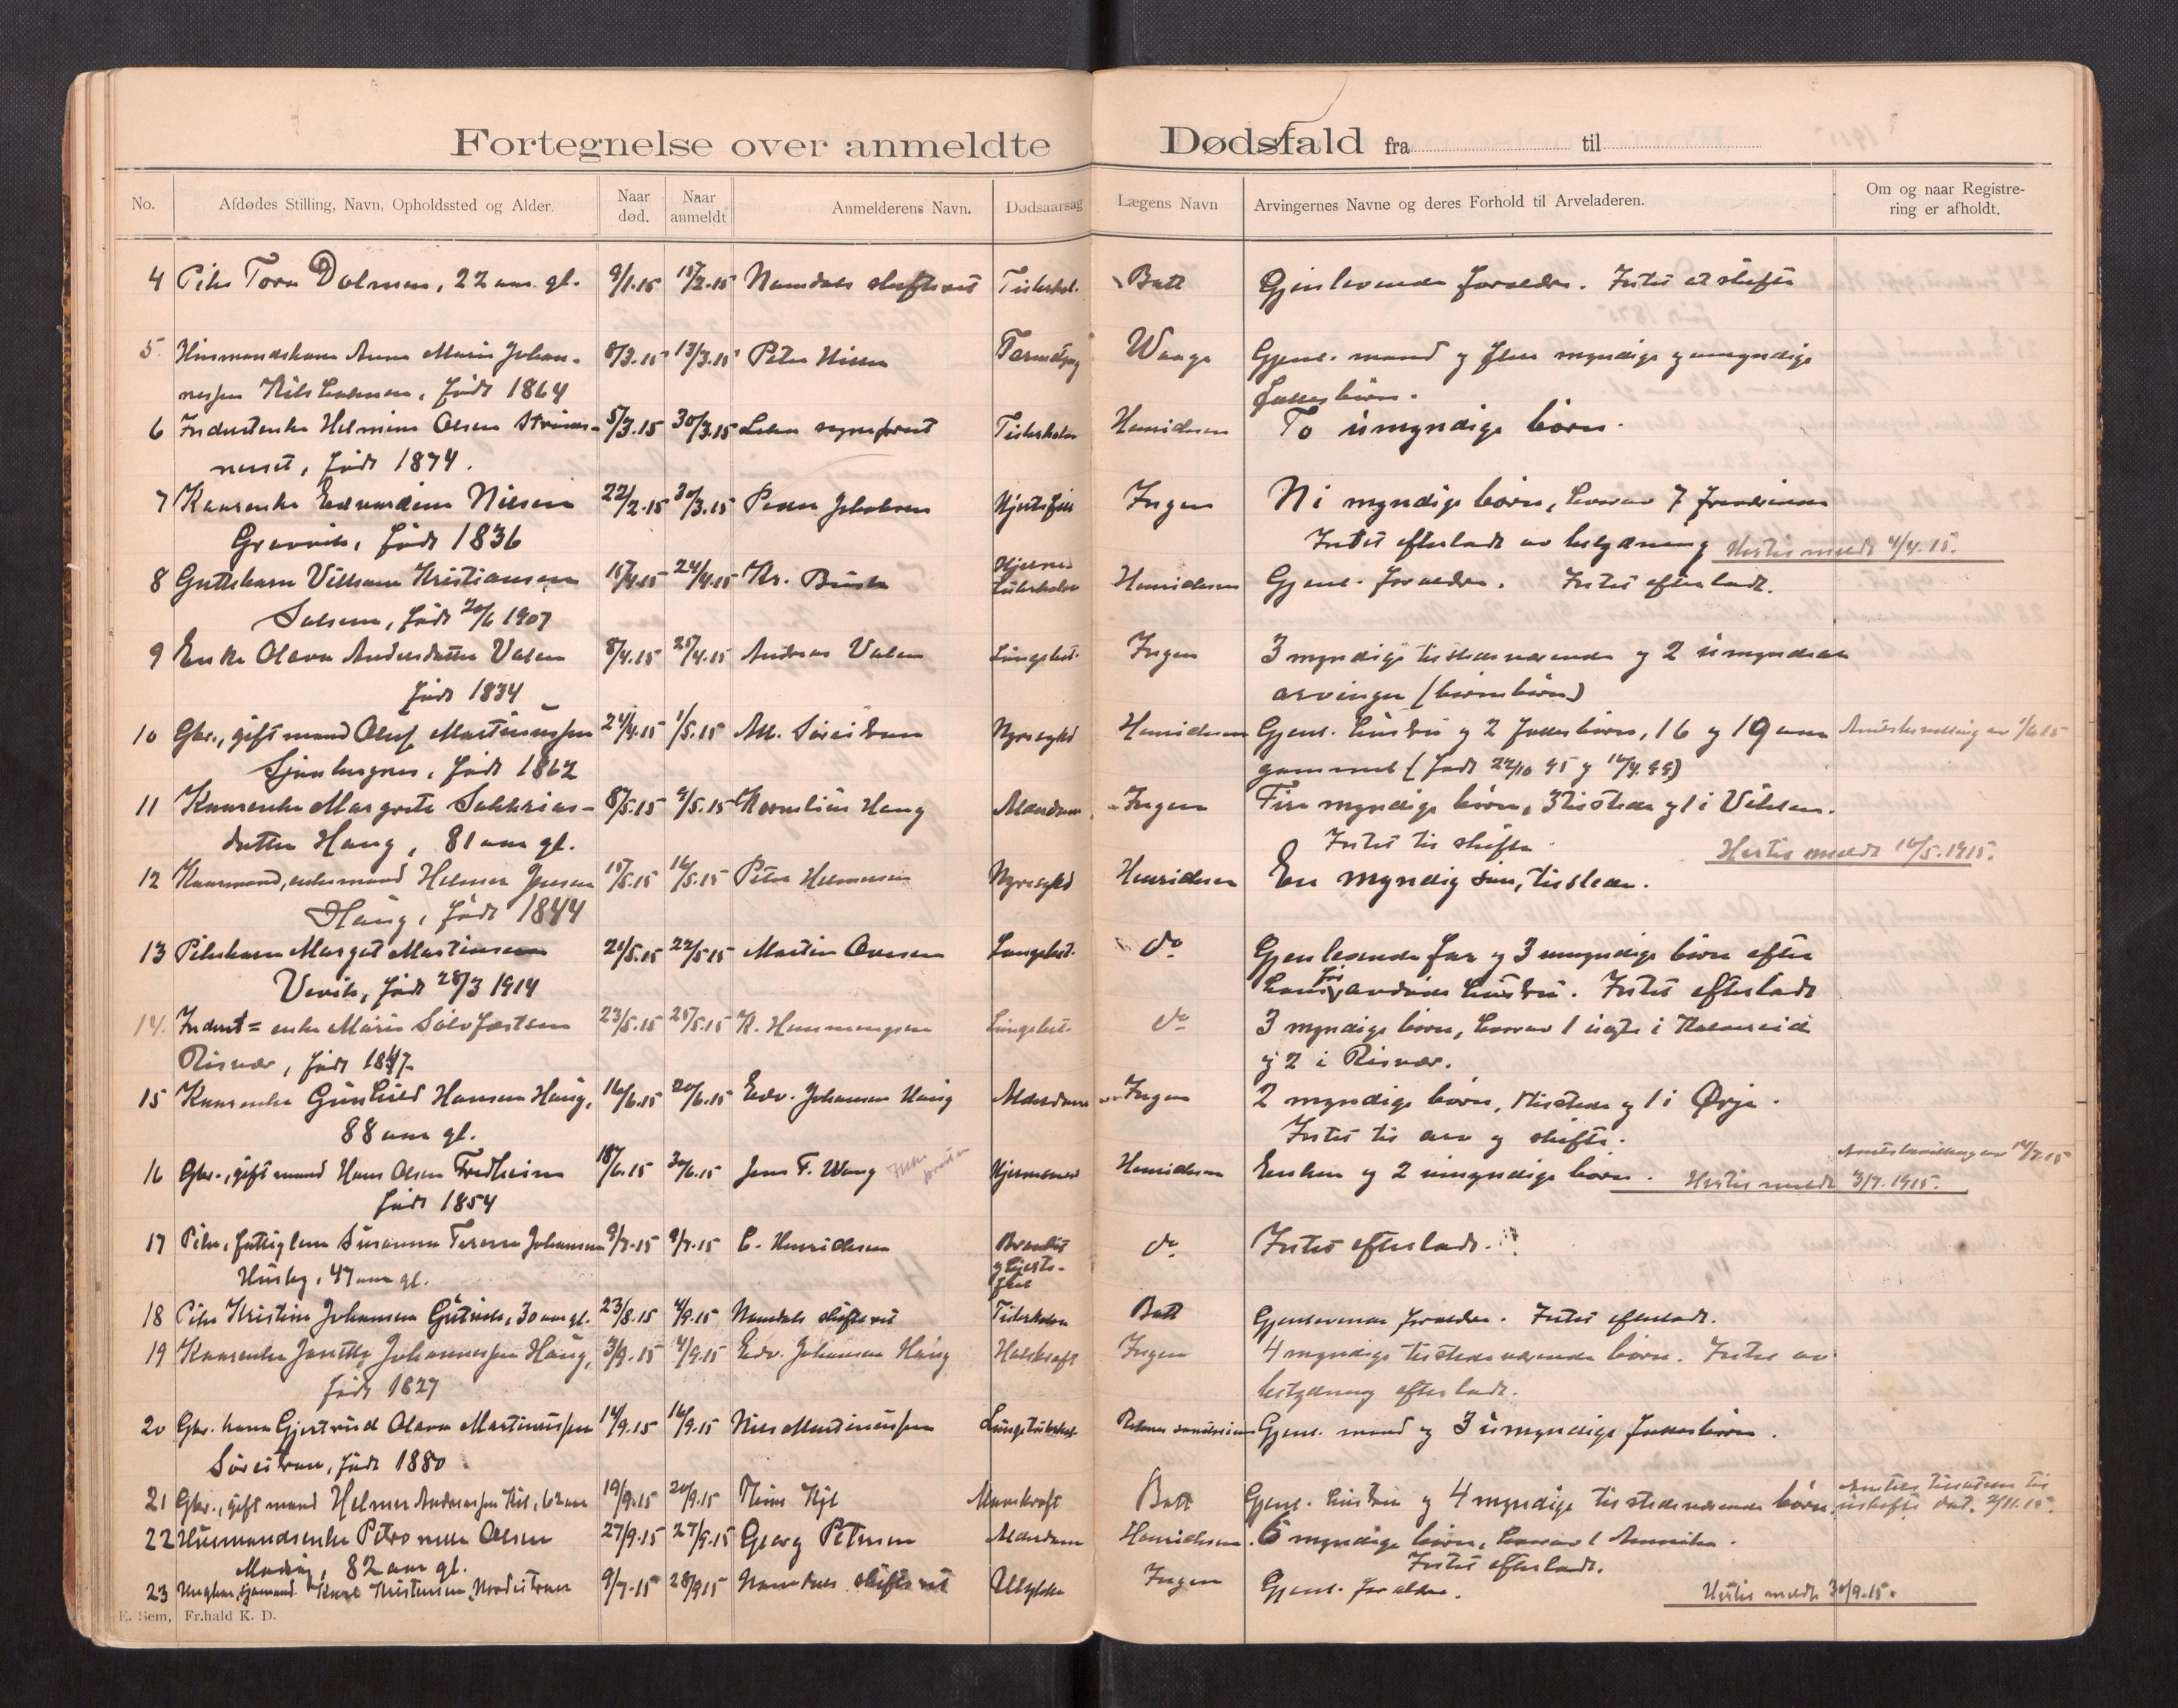 Fortegnelse over anmeldte Dødsfald fra til
No. Afdødes Stilling, Navn, Opholdssted og Alder. Naar død. Naar anmeldt Anmelderens Navn. Dødsaarsag Lægens Navn Arvingernes Navne og deres Forhold til Arveladeren. Om og naar Registrering er afholdt.
4 Pike Tora Dolmen, 22 aar gl. 9/1.15 15/2.15 Namdals skifteret Tuberkul. Batt Gjenlevende forældre. Intet at skifte
5 Husmandskone Anna Marie Johan- 8/3.15 13/3.15 Peter Nissen Waage Gjenl. mand og flere myndige og umyndige
nessen, født 1864 fællesbörn.
6 Inderstenke Helmine Olsen 5/3.15 30/3.15 Tuberkulose Henriksen To umyndige börn.
neset, født 1874.
7 Kaarenke Edvardine Nilsen 22/2.15 30/3.15 Peder Jakobsen Hjertefeil Ingen Ni myndige börn, hvorav 7
Gravvik, født 1836 Intet efterladt av betydning Hertil meldt 4/4.15.
8 Guttebarn Vilhelm Kristiansen 15/4.15 24/4.15 Kr. Buvik Hjerne-
tuberkulose Henriksen Gjenl. forældre. Intet efterladt.
Salsen, født 20/6 1907
9 Enke Olava Andersdatter Valen 8/4.15 25/4.15 Andreas Valen Lungebet. Ingen 3 myndige tilstedeværende og 2 umyndige
født 1834 arvinger (börnebörn)
10 Gbr., gift mand Oluf Martinussen 24/4.15 1/5.15 Nyresykd Henriksen Gjenl. hustru og 2 fællesbörn, 16 og 19 aar Amtsbevilling av 1/6 15
født 1862 gammel (født 22/10 95 og
11 Kaarenke Margrete Sakarias- 8/5.15 9/5.15 Kornelius Haug Alderdom Ingen Fire myndige börn, 3 tilstede og 1 i Vikten.
datter Haug, 81 aar gl. Intet til skifte. Hertil meldt 10/5.1915.
12 Kaarmand, enkemand Helmer Jensen 15/5.15 16/5.15 Peter Helmersen Nyresykd Henriksen En myndig sön, tilstede.
Haug, født 1844
13 Pikebarn Margot Martinsen 21/5.15 22/5 15 Martin Ovesen Lungebet. do Gjenlevende far og 3 umyndige börn efter
født 28/3 1914 hans för avdøde hustru. Intet efterladt
14. Inderst=enke Marie Sølvfæstsen 23/5.15 25/5.15 K. Hemmingsen Lungebet. do 3 myndige börn, hvorav 1 ugift i Kolvereid
Risvær, født 1847. og 2 i Risvær.
15 Kaarenke Gunhild Hansen Haug, 16/6.15 20/6.15 Edv. Johansen Haug Alderdom Ingen 2 myndige börn, 1 tilstede og 1 i Ørje.
88 aar gl. Intet til arv og skifte.
16 Gbr., gift mand Hans Olsen Fredheim 18/6.15 30/6.15 Jens F. Wang Henriksen Enken og 2 umyndige börn. Hertil meldt 3/7.1915. Amtsbevilling av 14/7.15
født 1854
17 Pike, fattiglem Susanna Teresia Johansen 9/7.15 9/7.15 C. Henriksen
og hjerte-
feil do Intet efterladt.
Husby, 47 aar gl.
18 Pike Kristine Johansen Gutvik, 30 aar gl. 23/8.15 4/9.15 Namdals skifteret Tuberkulose Batt Gjenlevende forældre. Intet efterladt.
19 Kaarenke Johannessen Haug, 3/9.15 4/9.15 Edv. Johansen Haug Ingen 4 myndige tilstedeværende börn. Intet av
født 1827 betydning efterladt.
20 Gbr. kone Gjertrud Olava Martinussen 14/9.15 16/9.15 Nils Martinussen Lungetuberkul. Gjenl. mand og 3 umyndige fællesbörn.
født 1880
21 Gbr., gift mand Helmer Andreassen, 62 aar 19/9.15 20/9.15 Batt Gjenl. hustru og 4 myndige tilstedeværende börn.
22 Husmandsenke Petronelle Olsen 27/9.15 27/9.15 Georg Petersen Alderdom Henriksen 6 myndige börn, hvorav 1 Amerika.
82 aar gl. Intet efterladt.
23 Ungkar, sjømand Karl Kristensen 9/7.15 28/9 15 Namdals skifteret Ulykke Ingen Gjenl. forældre. Hertil meldt 30/9.15.
E. Sem, Fr.hald K. D.